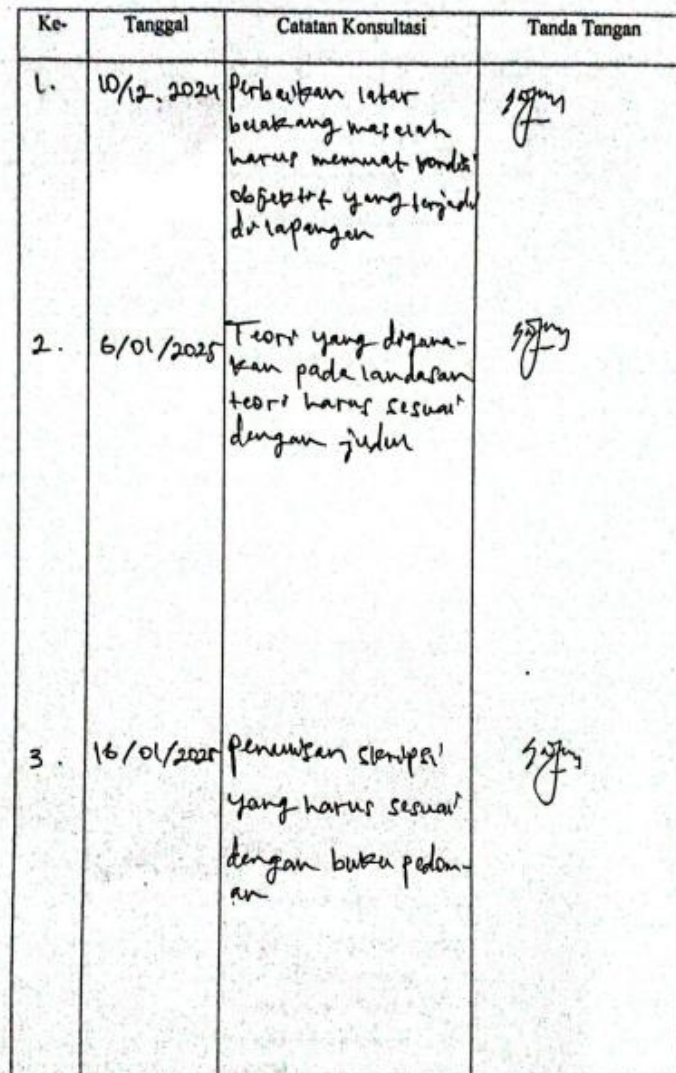 Ke- Tanggal Catatan Konsultasi Tanda Tangan
1. 10/12.2024 Perbaikan latar
belakang masalah
harus memuat kondisi
objektif yang terjadi
di lapangan
2. 6/01/2025 Teori yang diguna-
kan pada landasan
teori harus sesuai
dengan judul
3. 16/01/2025 penulisan skripsi
yang harus sesuai
dengan buku pedom-
an